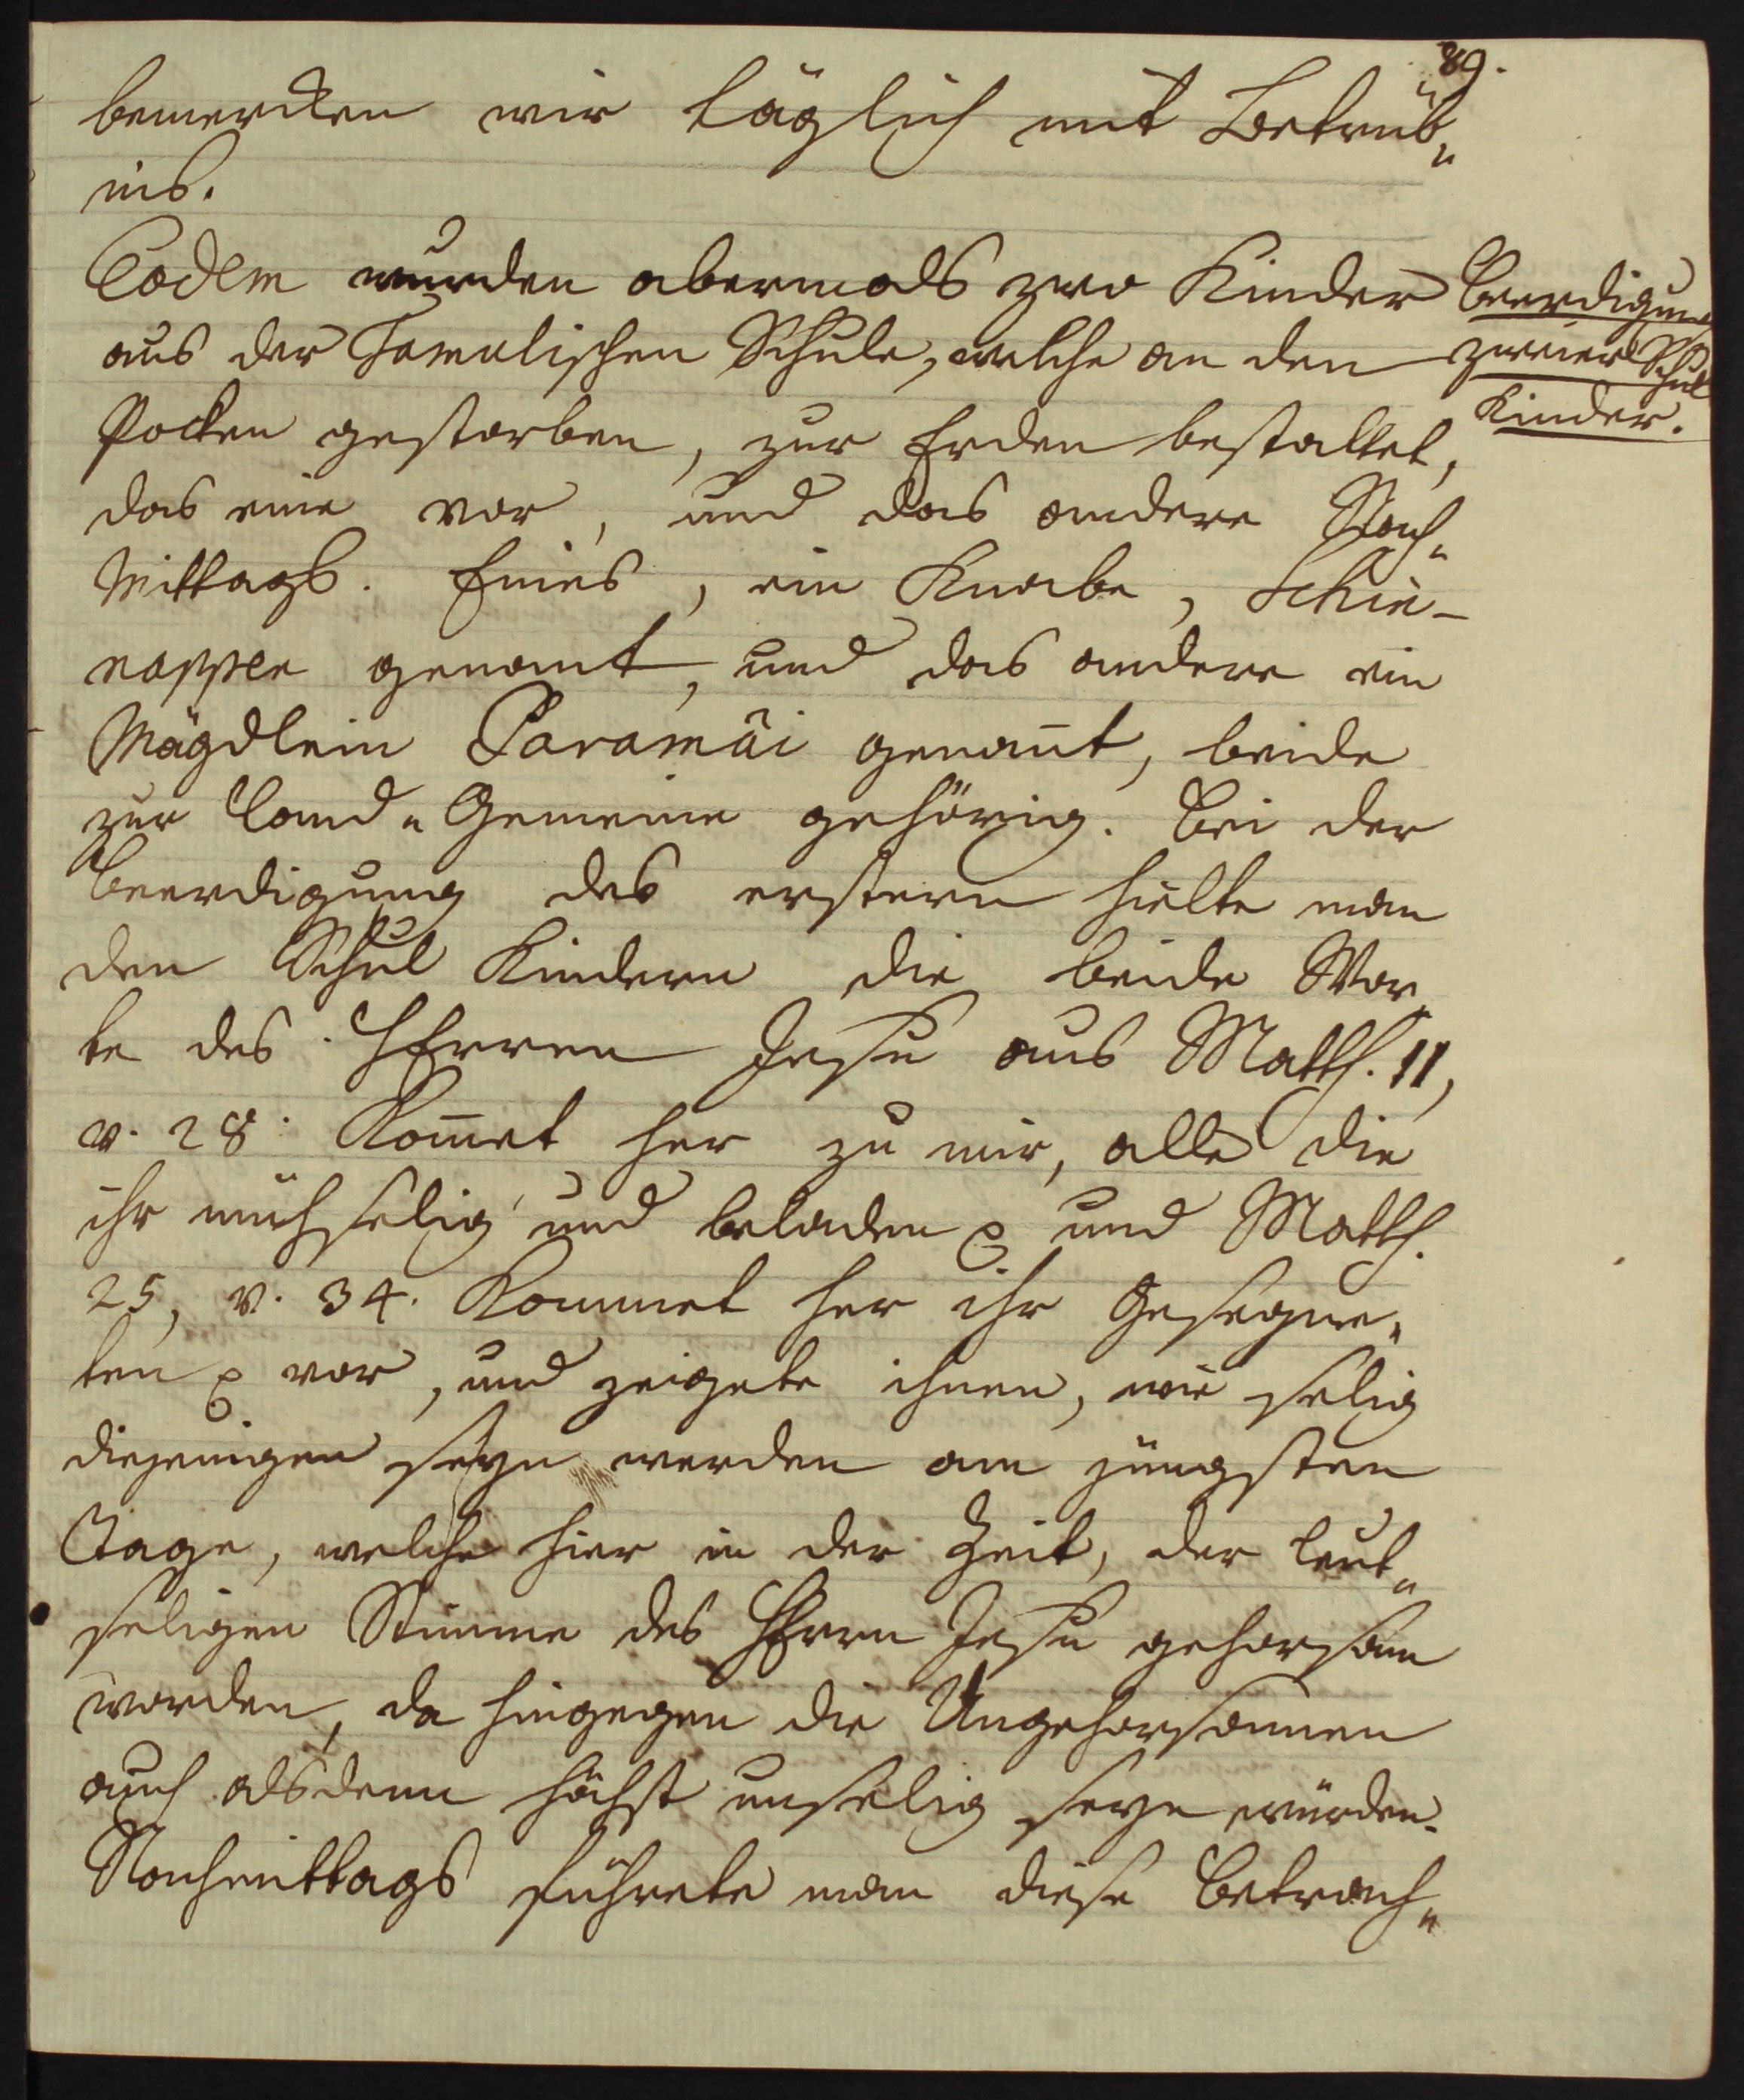 89.
bemercken wir täglich mit Betrüb„
nis.
Eodem wurden abermals zwo Kinder
aus der Tamulischen Schule, welche an den
Pocken gestorben, zur Erden bestattet,
das eine vor, und das andere Nach„
Mittags. Eines, ein Knabe, Schin-
nappen genant, und das andere ein
Mägdlein Paramái genañt, beide
zur Land„Gemeine gehörig. Bei der
Beerdigung des erstern hielte man
den Schul Kindern die beide Wor„
te des HErren Jesu aus Matth. 11,
v. 28. Kom̃et her zu mir, alle die
ihr mühselig und beladen p. und Matth.
25, v. 34. Kommet her ihr Gesegne„
ten p. vor, und zeigete ihnen, wie selig
diejenigen seyn werden am jüngsten
Tage, welche hier in der Zeit, der leut„
seligen Stimme des HErrn Jesu gehorsam
worden, da hingegen die Ungehorsamen
auch alsdenn höchst unselig seyn würden.
Nachmittags führete man diese Betrach„
Beerdigung
zweier Schul
Kinder.